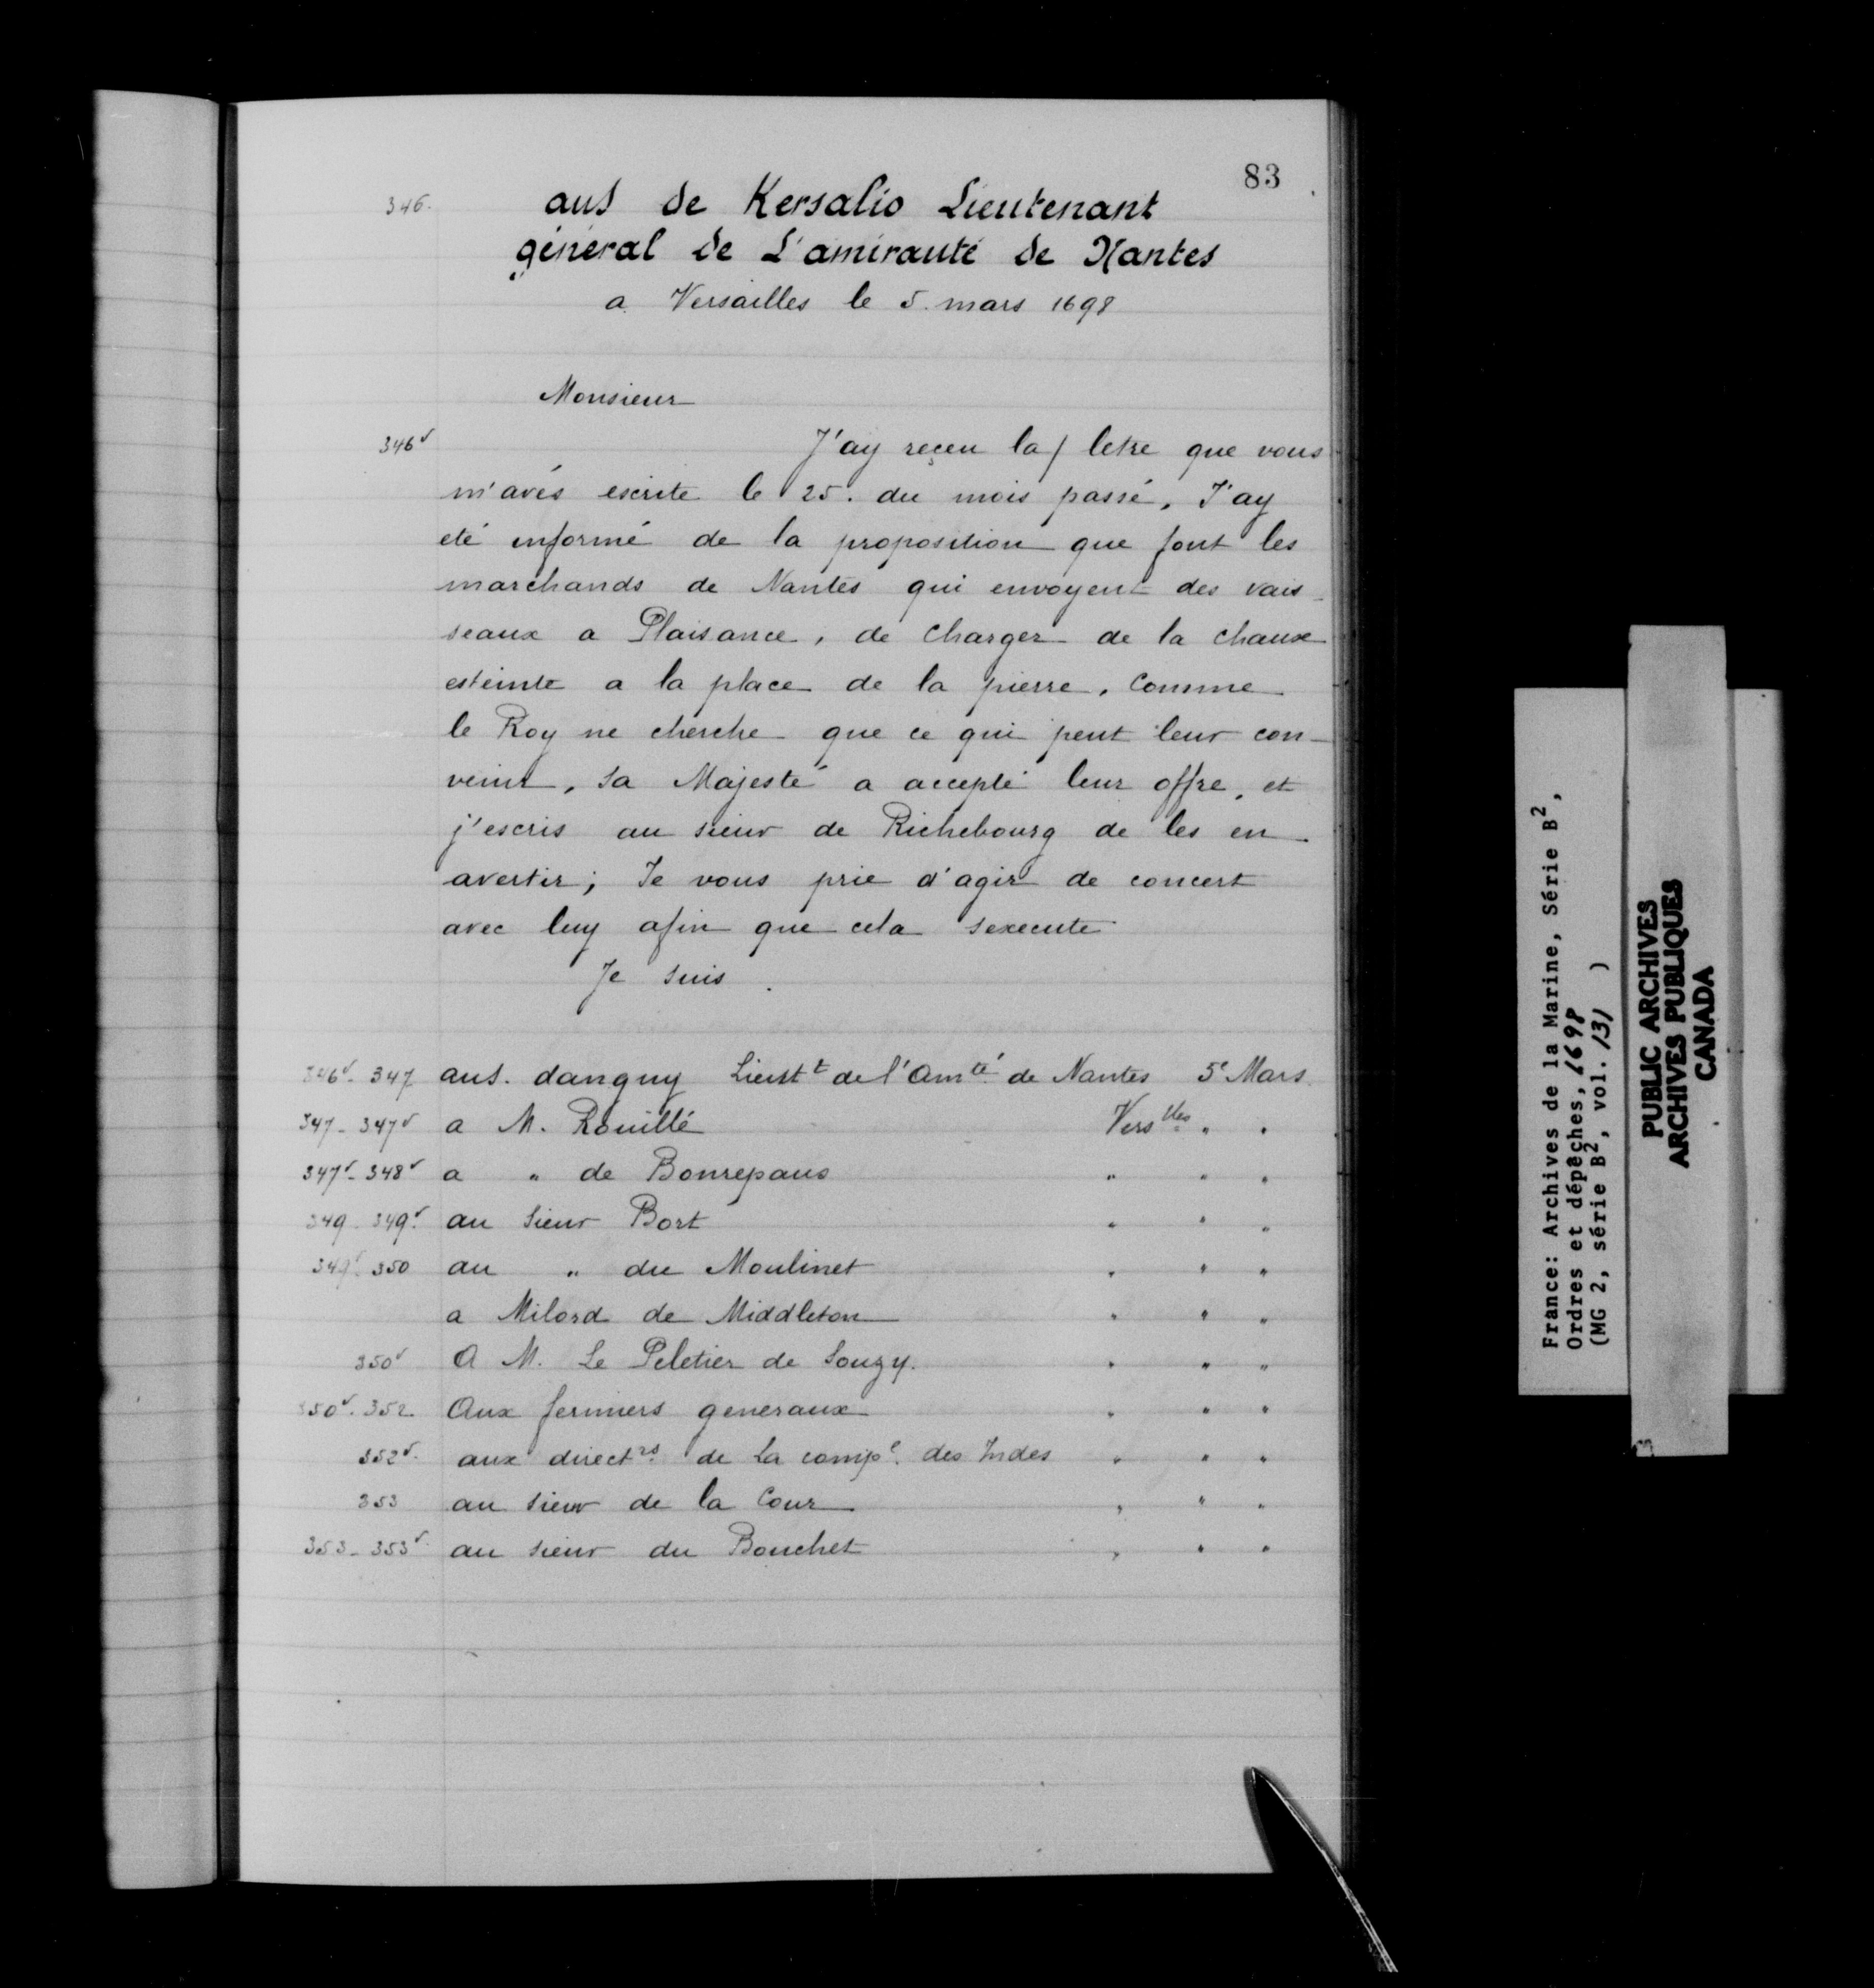 83
346. auS de Kersalio Lieutenant
général de L'amirauté de Nantes
a Versailles le 5. mars 1698
Monsieur
346v J'ay reçeu la / letre que vous
m'avés escrite le 25. du mois passé, J'ay
eté informé de la proposition que font les
marchands de Nantes qui envoyent des vais-
seaux a Plaisance, de charger de la chaux
esteinte a la place de la pierre. Comme
le Roy ne cherche que ce qui peut leur con-
venir, Sa Majesté a accepté leur offre, et
j'escris au sieur de Richebourg de les en
avertir; Je vous prie d'agir de concert
avec luy afin que cela s'execute
Je suis.
346v-347 auS. danguy Lieutt de l'Amté de Nantes 5e Mars
347-347v a M. Rouillé Verslles " "
347v-348v a " de Bonrepaus " " "
349-349v. au Sieur Bort " " "
349v-350 au " du Moulinet " " "
a Milord de Middleton " " "
350v A M. Le Peletier de Souzy. " " "
350v.352 Aux fermiers generaux " " "
352v. aux directrs de La compe. des Indes " " "
353 au sieur de la Cour " " "
353-353v. au sieur du Bouchet " " "
France: Archives de la Marine, Série B2,
Ordres et dépêches, 1698
(MG 2, série B2, vol. 131 )
PUBLIC ARCHIVES
ARCHIVES PUBLIQUES
CANADA